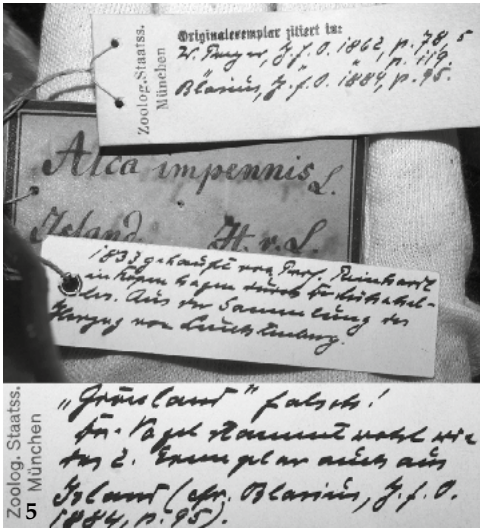 Zoolog. Staatss.
München
Originalexemplar zitiert in:
W. Preyer, J. f. O. 1862, p. 78,
p. 119.
Blasius, J. f. O. 1884, p. 95.
Alca impennis L.
Island H. v. L.
1833 gekauft von Prof. Reinhardt
in Kopenhagen durch
les. Aus der Sammlung des
Herzog von Leuchtenberg.
Zoolog. Staatss.
München
„Grönland" falsch!
Vogel stammt wohl wie
das 2. Exemplar auch aus
Island (cfr. Blasius, J. f. O.
1884, p. 95).
5